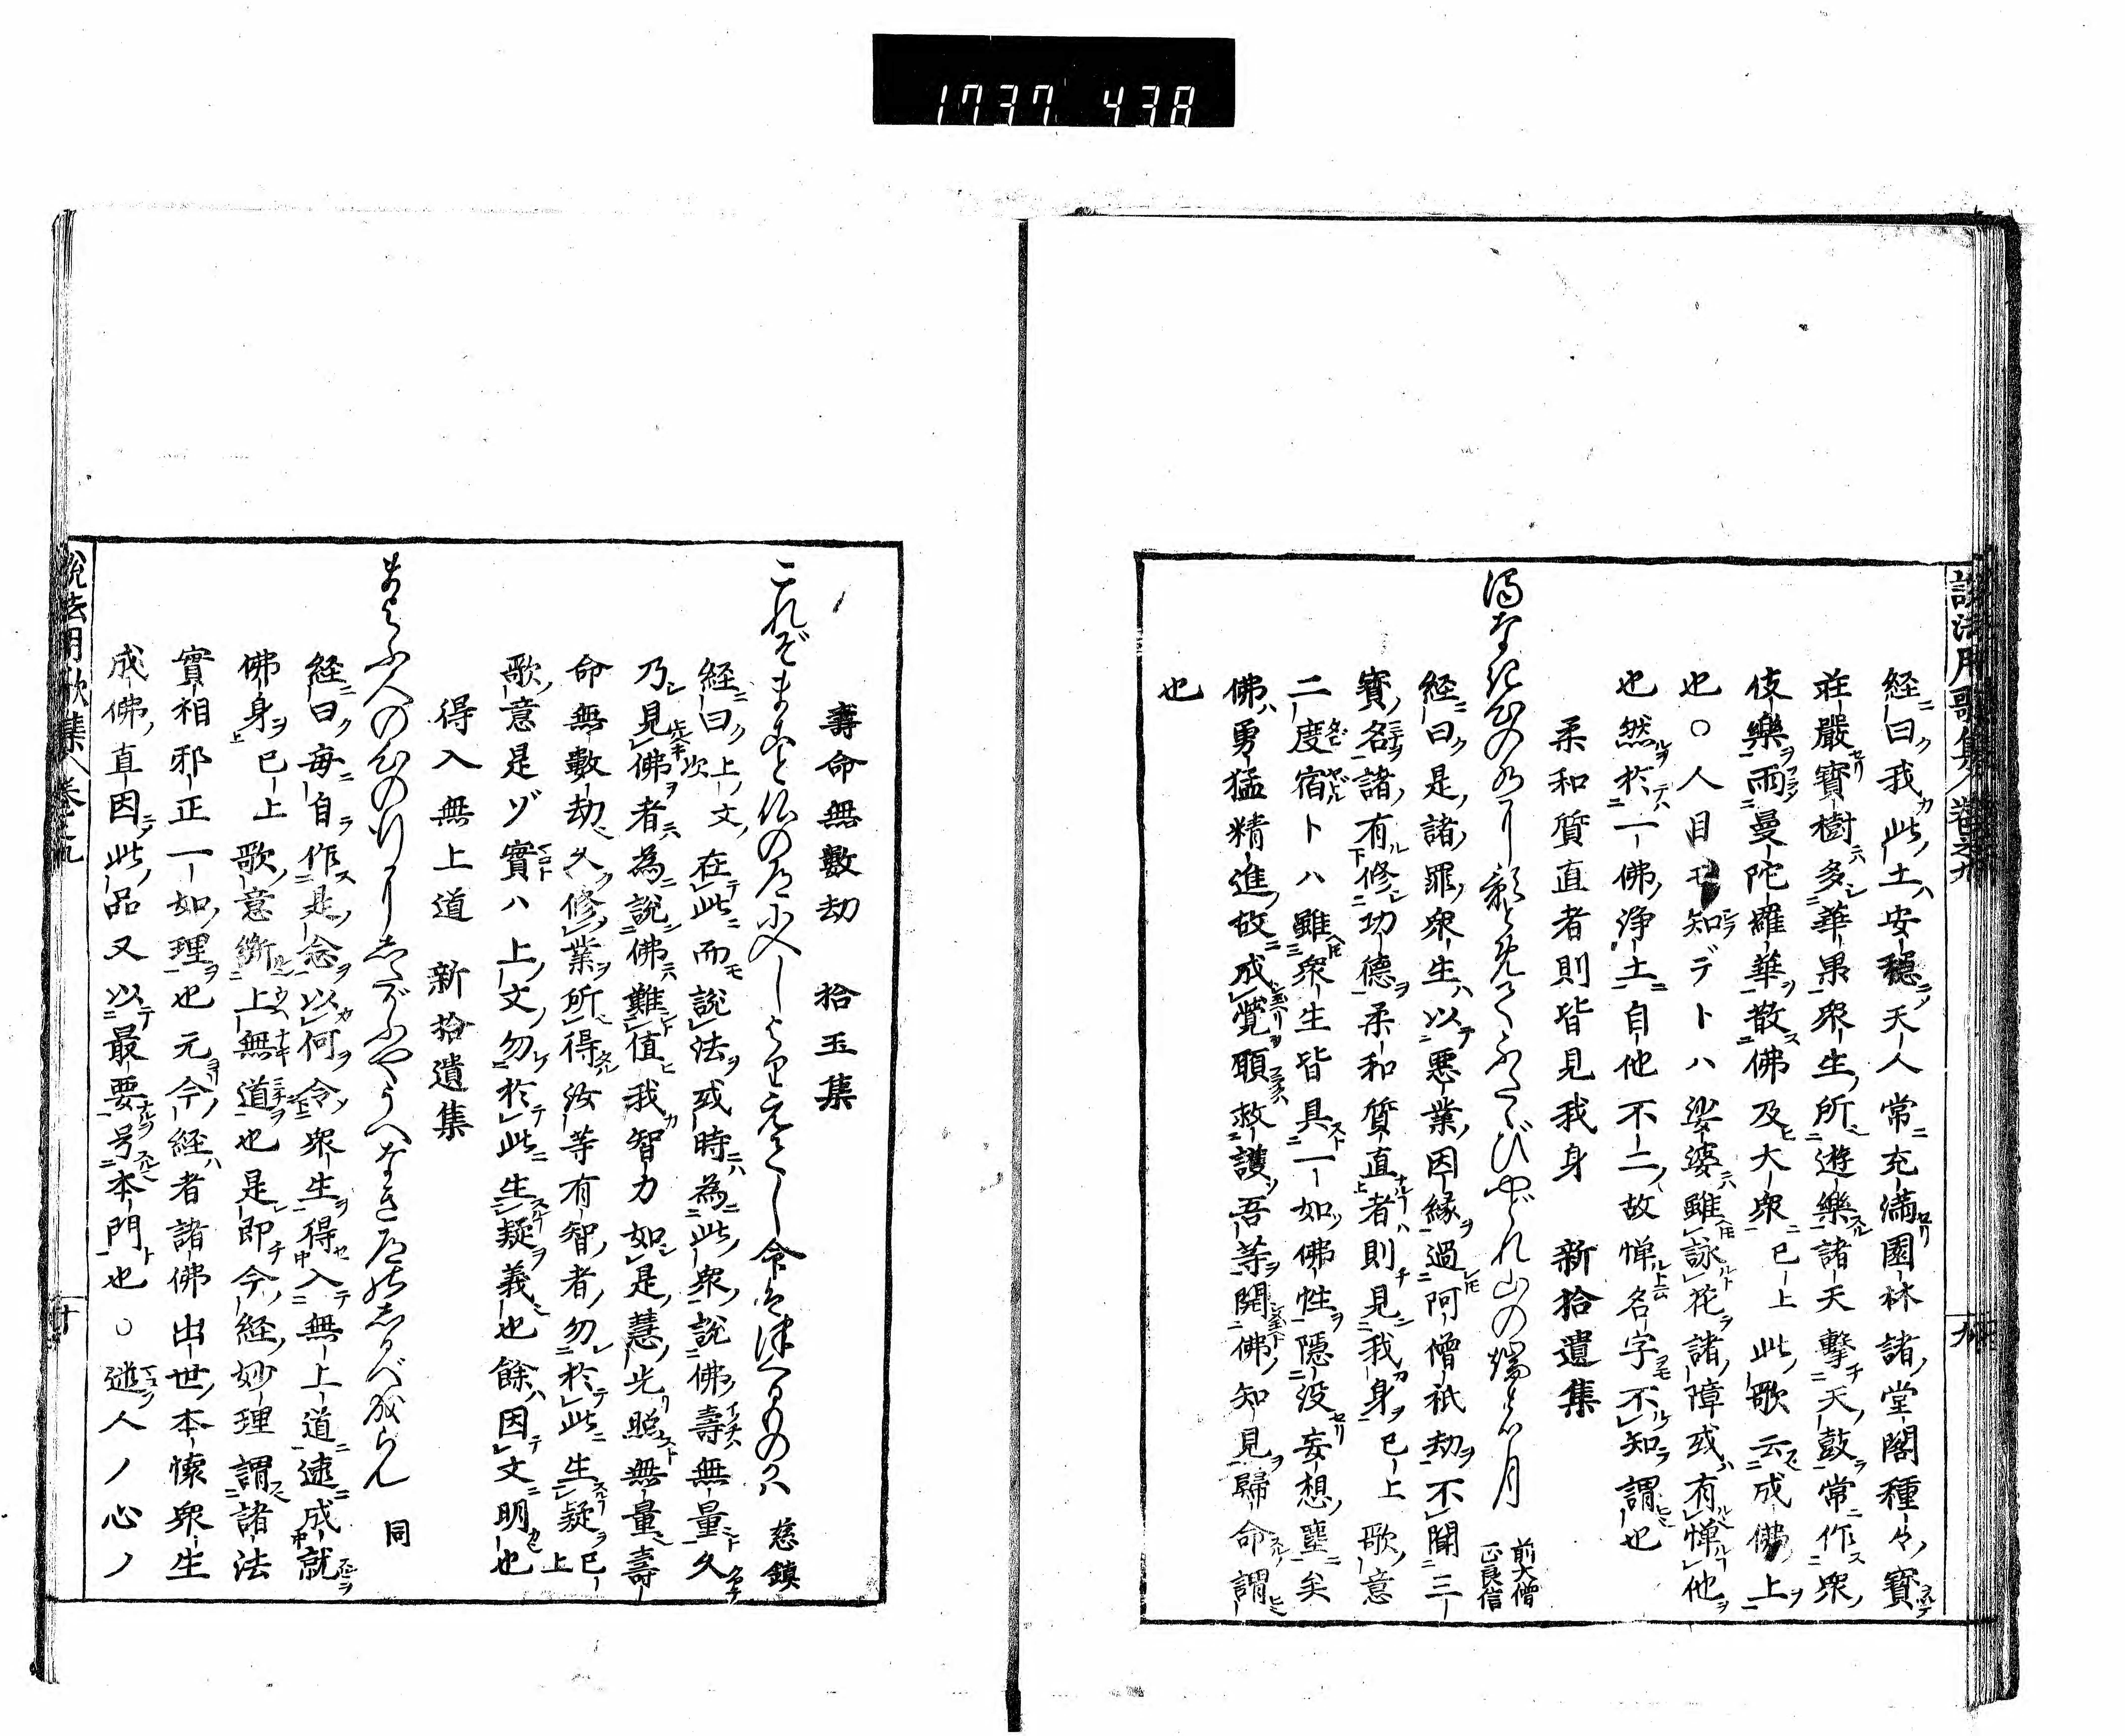 1737 438
説法用歌集 巻之九
経曰我此土安穏天人常充満園林諸堂閣種々寶
荘嚴寶樹多華果衆生所遊樂諸天撃天鼓常作衆
伎樂雨曼陀羅華散佛及大衆已上此歌云成佛上
也○人目モ知デトハ娑婆雖詠花諸障或有憚他
也然於一佛浄土自他不二故憚名字不知謂也
柔和質直者則皆見我身 新拾遺集
前大僧正良信
経曰是諸罪衆生以悪業因縁過阿僧祇劫不聞三
寳名諸有修功徳柔和質直者則見我身已上歌意
二度宿トハ雖衆生皆具一如佛性隠没妄想塵矣
佛勇猛精進故成覺願救護吾等開佛知見歸命謂
也
壽命無數劫 拾玉集
これぞまことの仏の道に入しより
慈鎮
経曰上文在此而説法或時為此衆説佛壽無量久
乃見佛者為説佛難値我智力如是慧光照無量壽
命無數劫久修業所得汝等有智者勿於此生疑已上
歌意是ゾ實ハ上文勿於此生疑義也餘因文明也
得入無上道 新拾遺集
同
経曰毎自作是念以何令衆生得入無上道速成就
佛身已上歌意 上無道也是即今経妙理謂諸法
實相邪正一如理也元今経者諸佛出世本懐衆生
成佛直因此品又以最要号本門也○迷人ノ心ノ
説法用歌集 巻之九 十